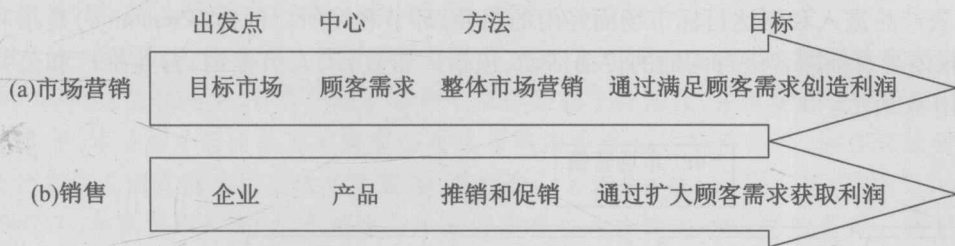 出发点 中心 方法 目标
(a)市场营销 目标市场 顾客需求 整体市场营销 通过满足顾客需求创造利润
(b)销售 企业 产品 推销和促销 通过扩大顾客需求获取利润